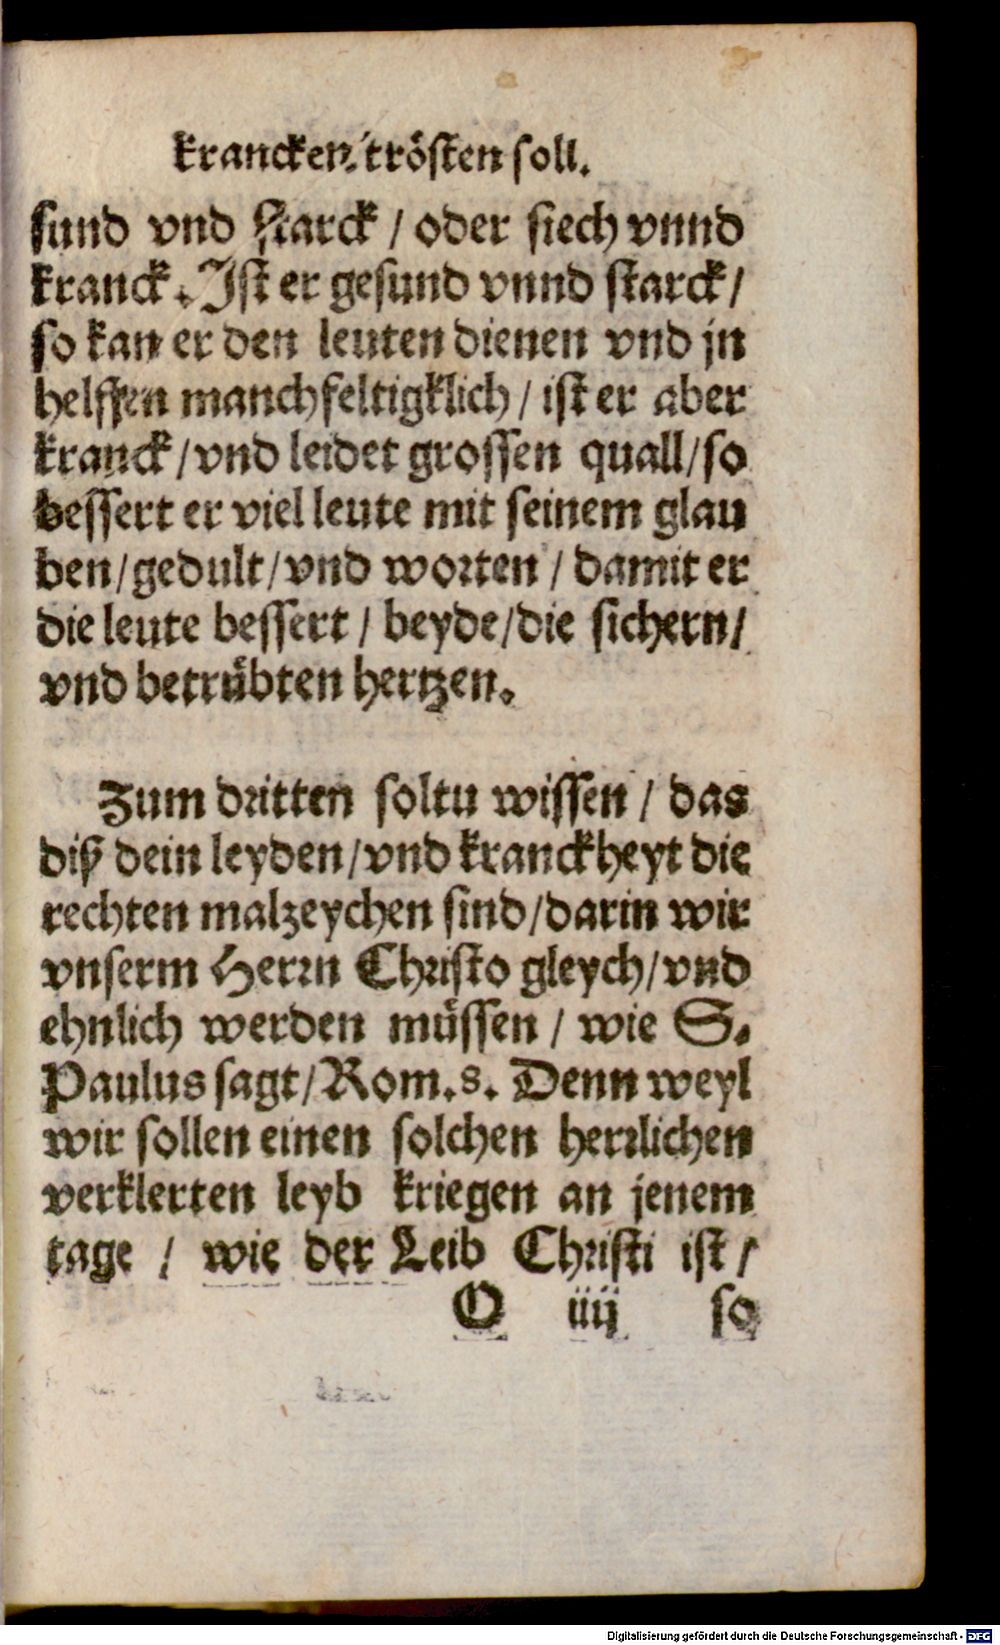 krancken trösten soll.
sund vnd starck / oder siech vnnd
kranck. Ist er gesund vnnd starck /
so kan er den leuten dienen vnd jn
helffen manchfeltigklich / ist er aber
kranck / vnd leidet grossen quall / so
bessert er viel leute mit seinem glau
ben / gedult / vnd worten / damit er
die leute bessert / beyde / die sichern /
vnd betrübten hertzen.
Zum dritten soltu wissen / das
diß dein leyden / vnd kranckheyt die
rechten malzeychen sind / darin wir
vnserm Herrn Christo gleych / vnd
ehnlich werden müssen / wie S.
Paulus sagt / Rom. 8. Denn weyl
wir sollen einen solchen herrlichen
verklerten leyb kriegen an jenem
tage / wie der Leib Christi ist /
O iiij so
Digitalisierung gefördert durch die Deutsche Forschungsgemeinschaft - DFG